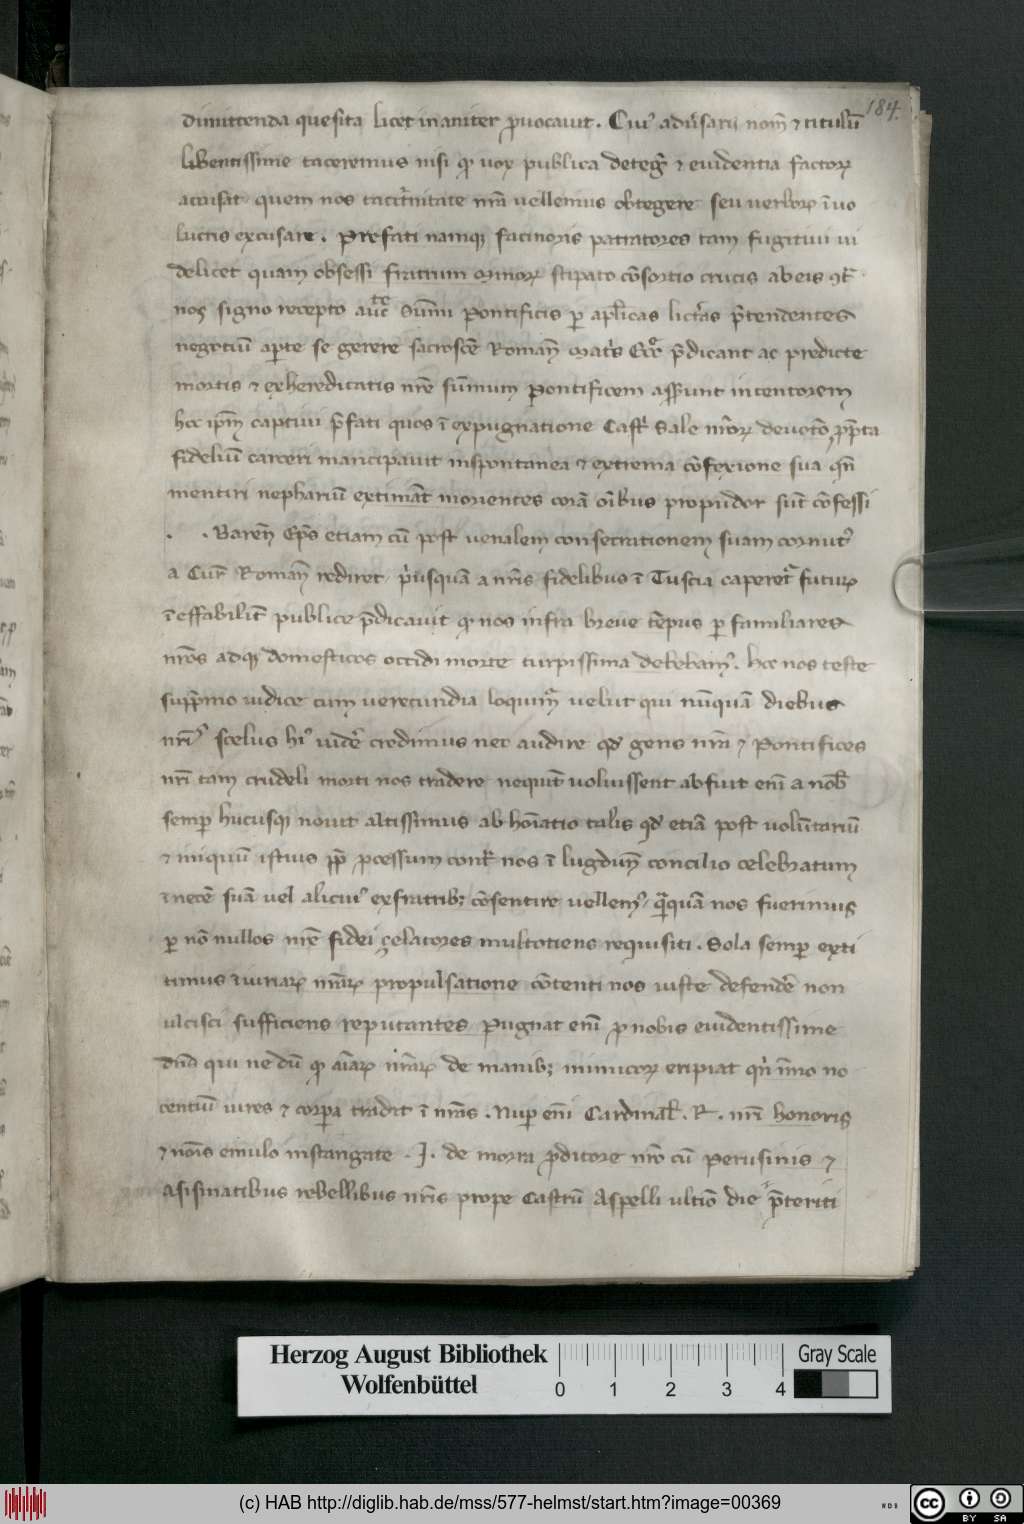 184.
dimittenda quesita licet inaniter ꝓuocauit. Cui᷒ adũsarii nom̃ ⁊ titulũ
libentissime taceremus nisi ꝙ uox publica deteg̃ ⁊ euidentia factoꝝ
accusat quem nos tacit̃nitate nr̃a uellemus obtegere seu uerboꝝ ĩuo
lucris excusare. Prefati namqꝫ facinoris patratores tam fugitiui ui
delicet quam obsessi fratrum minoꝝ stipato cõsortio crucis ab eis ꝯt̃
nos signo recepto auc̃te Sũmi Pontificis ꝑ apl̃icas litt̃as p̃tendentes
negotiũ ap̃te se gerere sacrosc̃e Roman̄ mat̃s Ecc̃e p̃dicant ac predicte
mortis ⁊ exhereditatis nr̃e sũmum Pontificem asserunt incentorem
hec ip̃m captiui p̃fati quos ĩ expugnatione Castr̃ Sale nr̃oꝝ deuotõ p̃pta
fideliũ carceri mancipauit in spontanea ⁊ extrema cõfexione sua qñ
mentiri nephariũ extimãt morientes corã oĩbus propudor sũt cõfessi
. . Baren̄ Ep̃s etiam cũ post uenalem consecrationem suam
a Cur̃ Roman̄ rediret p̃usquã a nr̃is fidelibus ĩ Tuscia caperet᷒ futuꝝ
ĩeffabilit̃ publice p̃dicauit ꝙ nos infra breue tẽpus ꝑ familiares
nr̃os adqꝫ domesticos occidi morte turpissima debebam᷒. Hec nos teste
supp̃mo iudice cum uerecundia loquim᷒ uelut qui nũquã diebus
nr̃is scelus hi᷒ uidẽ credimus nec audire qđ gens nr̃a ⁊ Pontifices
nr̃i tam crudeli morti nos tradere nequit̃ uoluissent abfuit enĩ a nob̃
semꝑ hucusqꝫ nouit altissimus abhoĩatio talis qđ etiã post uolũtariũ
⁊ iniquũ istius pp̃ ꝓcessum cont̃ nos ĩ lugdun̄ concilio celebratum
ĩ necẽ suã uel alicui᷒ ex fratribꝫ cõsentire uellem᷒ q̃quã nos fuerimus
ꝑ nõnullos nr̃e fidei çelatores multotiens requisiti. Sola semꝑ exti
timus iniuriaꝝ nr̃aꝝ propulsatione cõtenti nos iuste defendẽ non
ulcisci sufficiens reputantes Pugnat enĩ ꝓ nobis euidentissime
dñs qui nedũ ꝙ aĩaꝝ nr̃aꝝ de manibꝫ inimicoꝝ eripiat qñ ĩmo no
centiũ uires ⁊ corpa tradit ĩ nr̃as. Nuꝑ enĩ Cardinal̃. R. nr̃i honoris
⁊ noĩs emulo instangate. J. de morra ꝓditore nr̃o cũ Perusinis ⁊
Asisinatibus rebellibus nr̃is prope Castrũ Aspelli ultiõ die p̃teriti
Herzog August Bibliothek
Wolfenbüttel
0 1 2 3 4
Gray Scale
(c) HAB http://diglib.hab.de/mss/577-helmst/start.htm?image=00369
WDB
cc BY SA